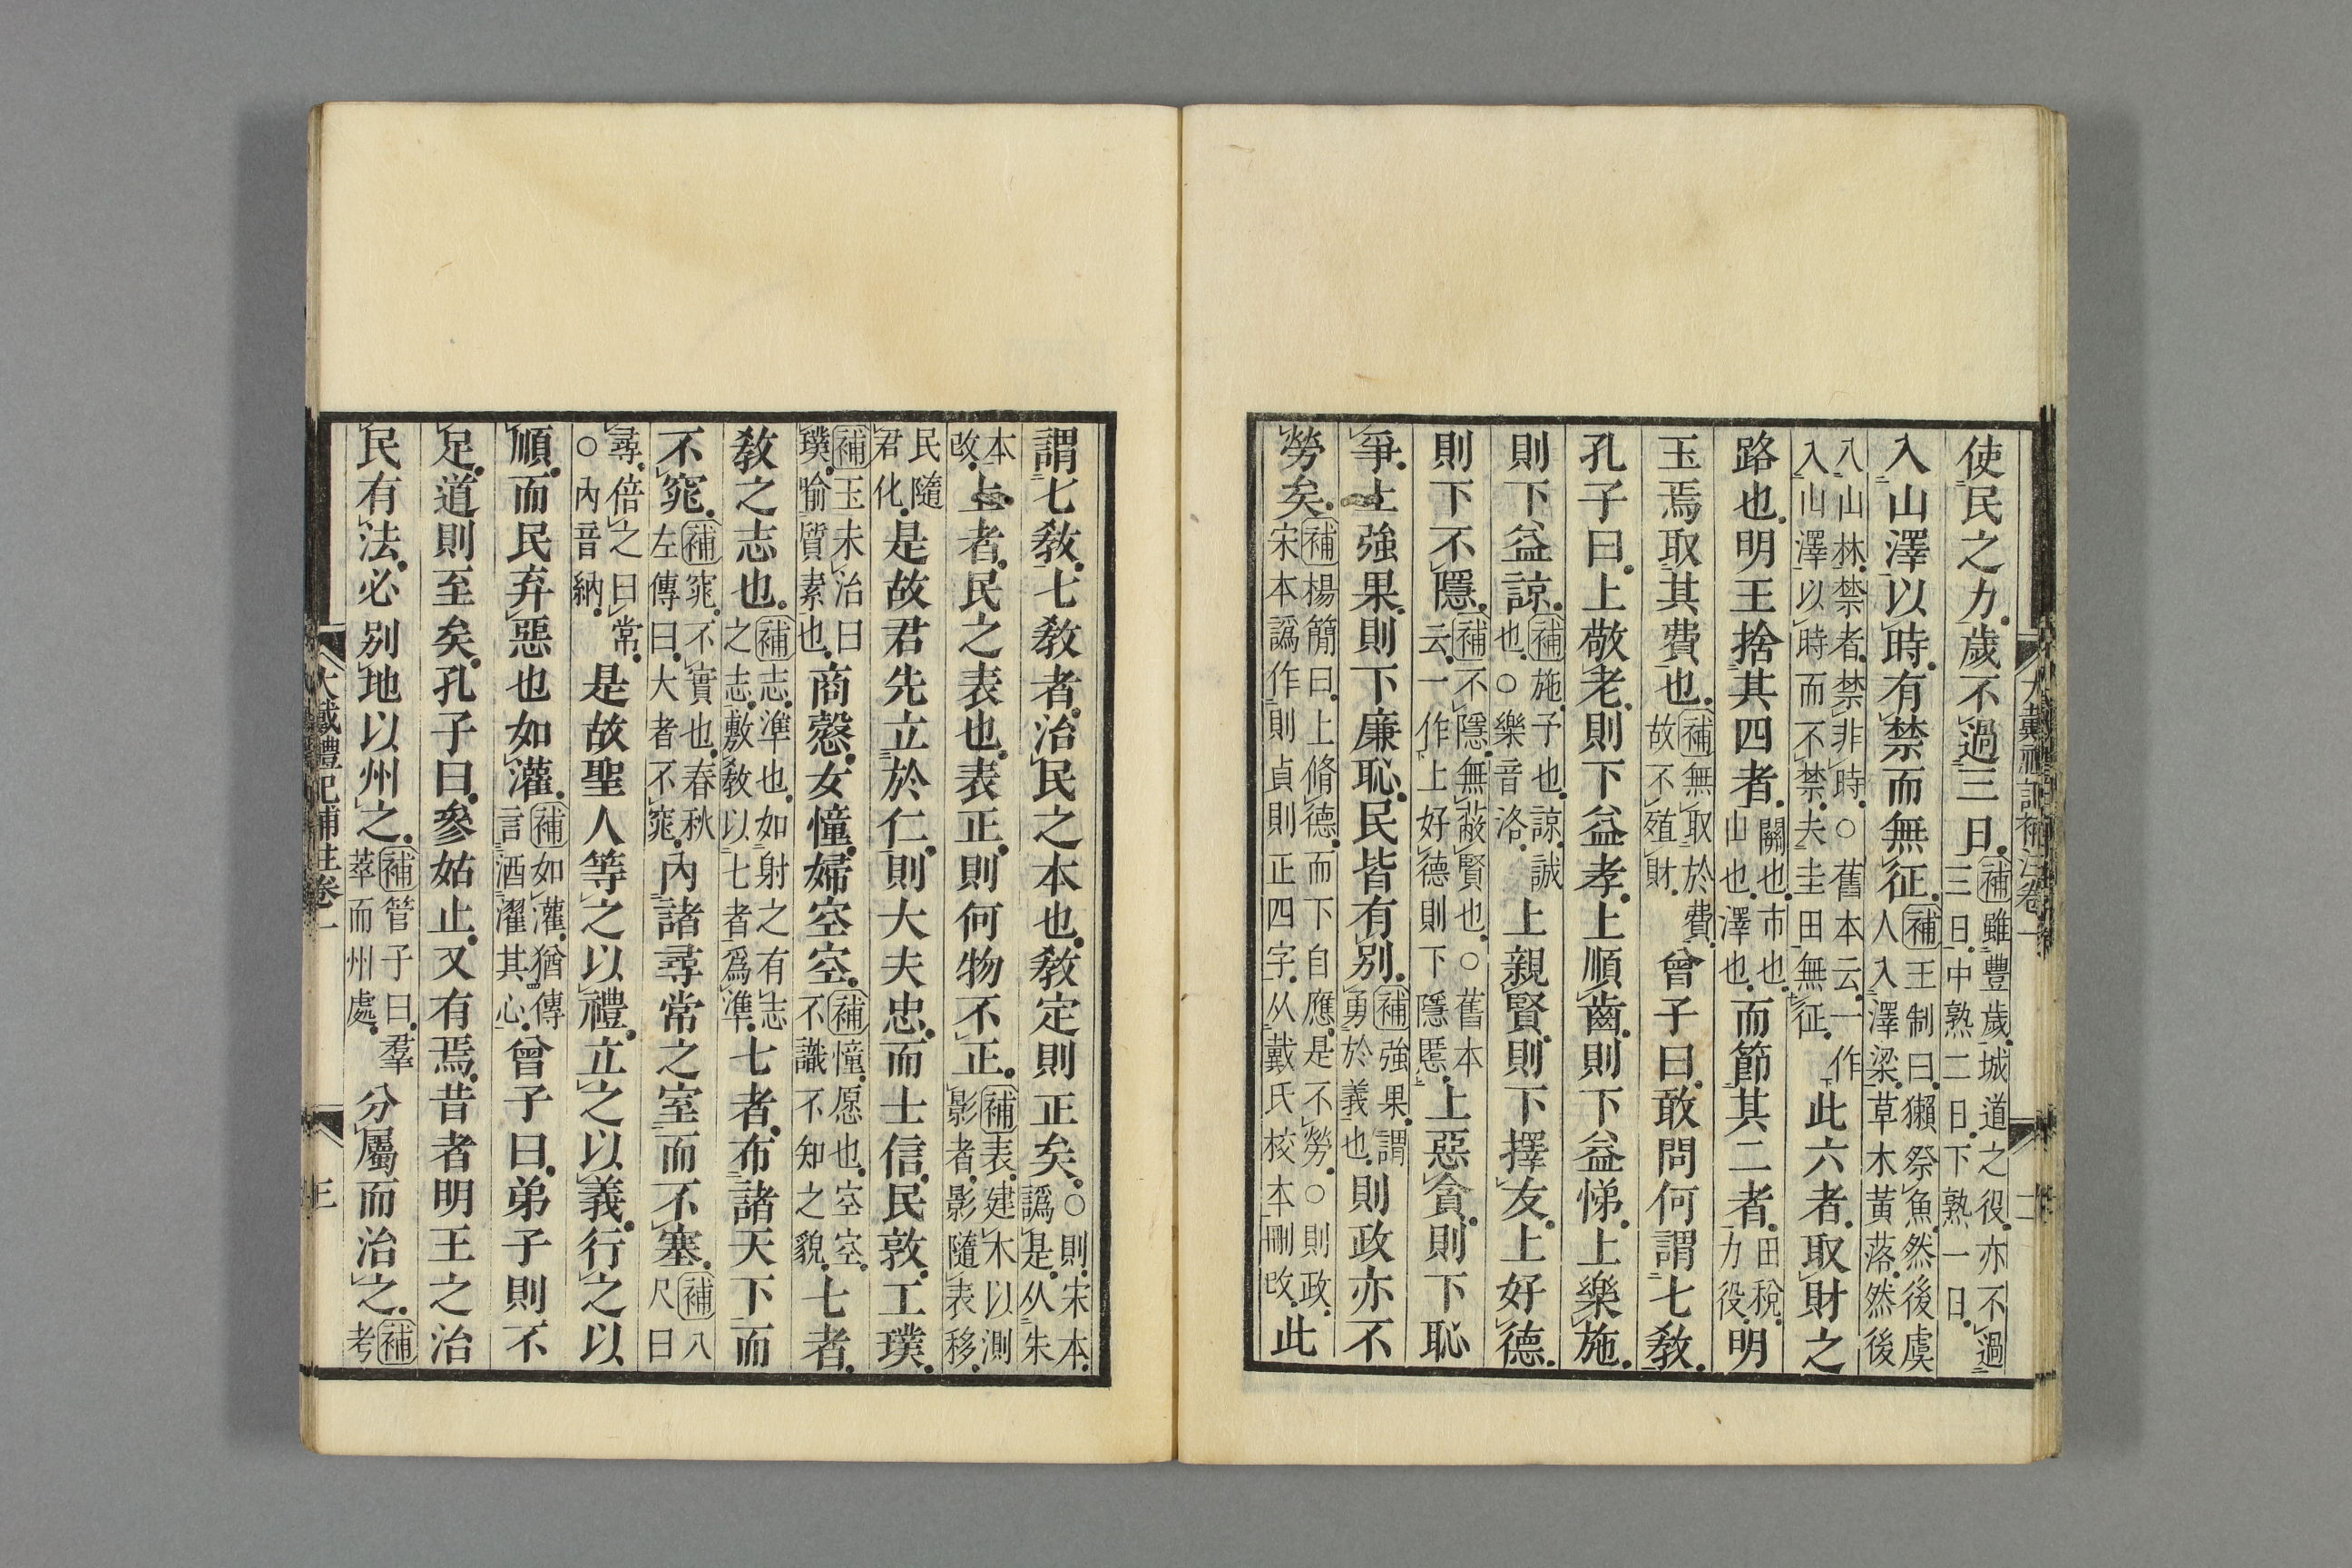 使民之力歲不過三日補雖豐歲城道之役亦不過三日中熟二日下熟一日
入山澤以時有禁而無征補王制曰獺祭魚然後虞人入澤梁草木黃落然後
入山林禁者禁非時○舊本云一作入山澤以時而不禁夫圭田無征此六者取財之
路也明王捨其四者關也市也山也澤也而節其二者田稅力役明
王焉取其費也補無取於費故不殖財曾子曰敢問何謂七教
孔子曰上敬老則下益孝上順齒則下益悌上樂施
則下益諒補施予也諒誠也○樂音洛上親賢則下擇友上好德
則下不隱補不隱無蔽賢也○舊本云一作上好德則下隱慝上惡貪則下恥
爭上強果則下廉恥民皆有別補強果謂勇於義也則政亦不
勞矣補楊簡曰上脩德而下自應是不勞○則政宋本譌作則貞則正四字从戴氏校本刪改此
大戴禮記補注卷一
二
謂七教七教者治民之本也教定則正矣○則宋本譌是从朱
本改上者民之表也表正則何物不正補表建木以測影者影隨表移
民隨君化是故君先立於仁則大夫忠而士信民敦工璞
補玉未治曰璞喻質素也商愨女憧婦空空補憧愿也空空不識不知之貌七者
教之志也補志準也如射之有志之志敷教以七者為準七者布諸天下而
不窕補窕不實也春秋左傳曰大者不窕內諸尋常之室而不塞補八尺曰
尋倍之曰常○內音納是故聖人等之以禮立之以義行之以
順而民弃惡也如灌補如灌猶傳言洒濯其心曾子曰弟子則不
足道則至矣孔子曰參姑止又有焉昔者明王之治
民有法必別地以州之補管子曰羣萃而州處分屬而治之補考
大戴禮記補注卷一
三